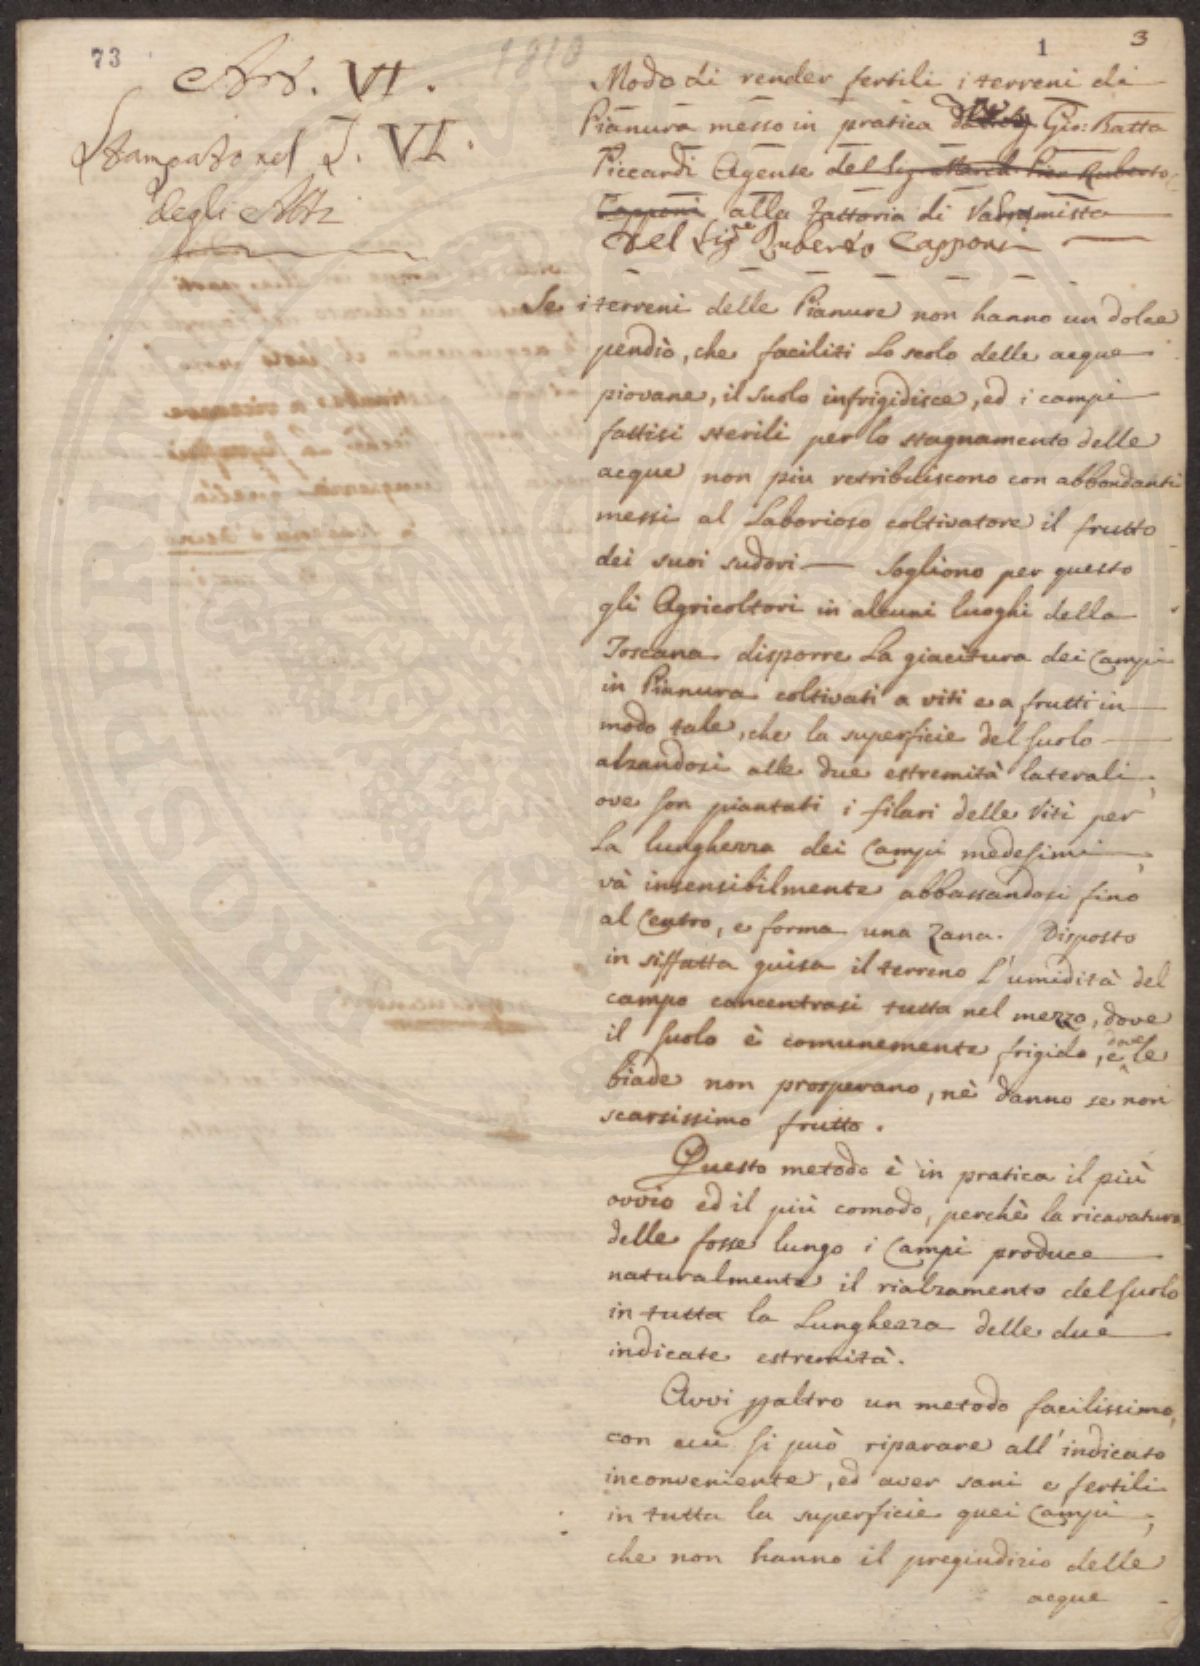 73
1810
1
3
Art. VI.
Stampato nel T. VI.
degli Atti
Modo di render fertili i terreni di
Pianura messo in pratica da Gio: Batta
Piccardi Agente del Sig. March. Pier Ruberto
Capponi alla Fattoria di Varramista
del Sigre Ruberto Capponi
Se i terreni delle Pianure non hanno un dolce
pendìo, che faciliti lo scolo delle acque
piovane, il suolo infrigidisce, ed i campi
fattisi sterili per lo stagnamento delle
acque non più retribuiscono con abbondanti
messi al Laborioso coltivatore il frutto
dei suoi sudori — Sogliono per questo
gli Agricoltori in alcuni luoghi della
Toscana disporre la giacitura dei Campi
in Pianura coltivati a viti e a frutti in
modo tale, che la superficie del Suolo
alzandosi alle due estremità laterali,
ove son piantati i filari delle Viti per
la lunghezza dei Campi medesimi,
và insensibilmente abbassandosi fino
al Centro, e forma una Zana. Disposto
in siffatta guisa il terreno l'umidità del
campo concentrasi tutta nel mezzo, dove
il Suolo è comunemente frigido, e dove le
biade non prosperano, nè danno se non
scarsissimo frutto.
Questo metodo è in pratica il più
ovvio ed il più comodo, perchè la ricavatura
delle fosse lungo i Campi produce
naturalmente il rialzamento del Suolo
in tutta la Lunghezza delle due
indicate estremità.
Avvi paltro un metodo facilissimo,
con cui si può riparare all'indicato
inconveniente, ed aver sani e fertili
in tutta la superficie quei Campi,
che non hanno il pregiudizio delle
acque